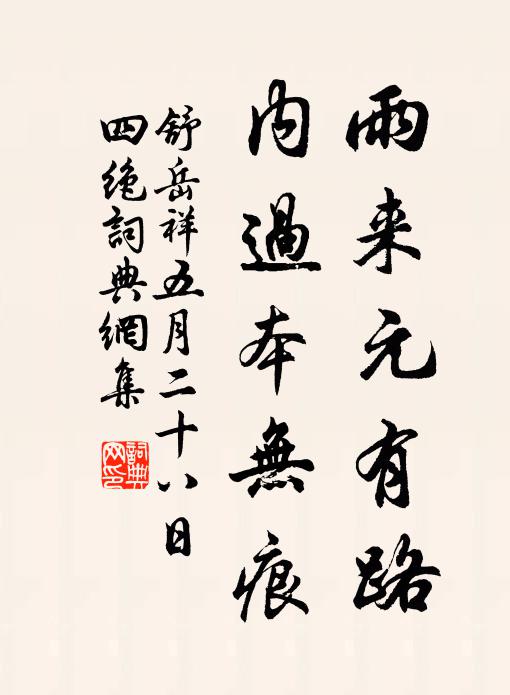 雨来元有路
内過本無痕
舒岳祥五月二十八日
四绝詞典網集
詞典
网印